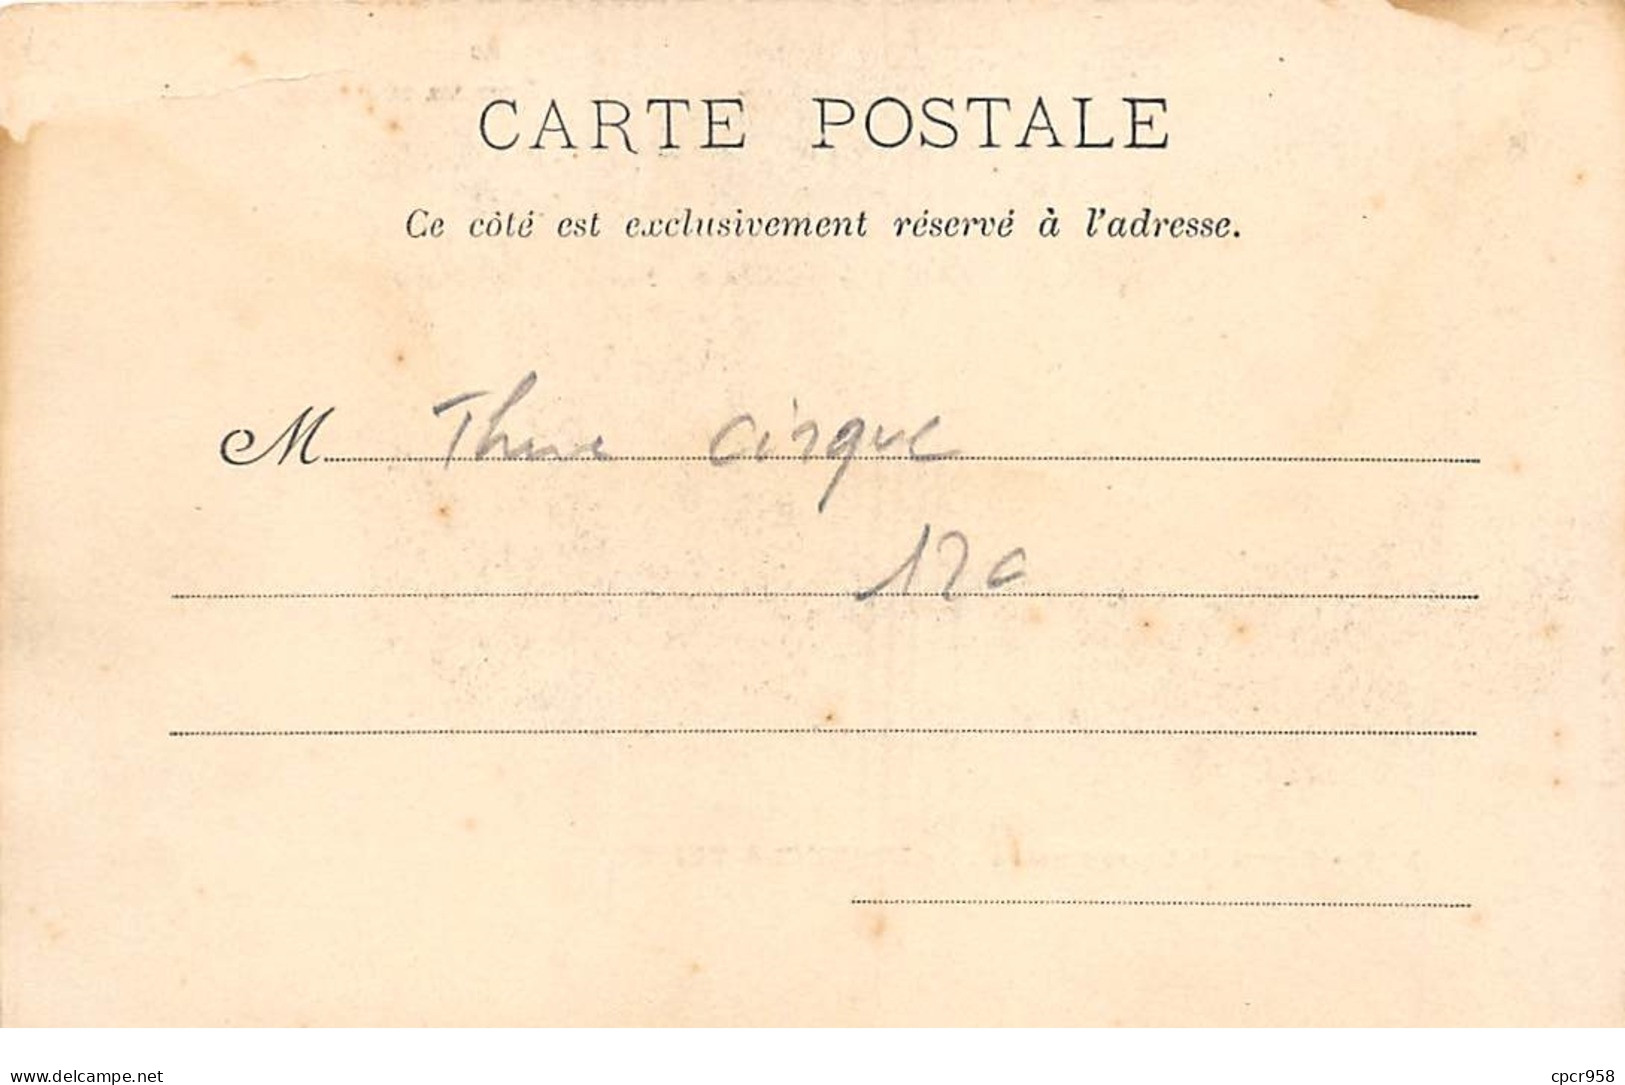 CARTE POSTALE
Ce côté est exclusivement réservé à l'adresse.
M
cirque
120
delcampe.net
cpcr958